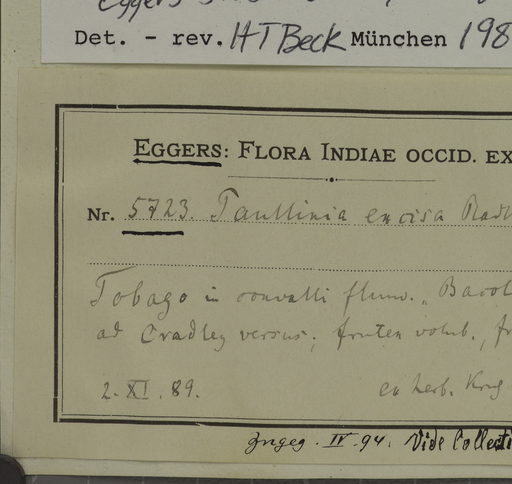 Eggers
Det. - rev. HT Beck München 198
EGGERS: FLORA INDIAE OCCID. EX
Nr. 5723. Paullinia encisa Radl
Tobago in convalli flum. „Bacol
ad Cradley versus; frutex volub., fr
2. XI. 89. ex herb. Krug
IV. 94. Vide Collecti